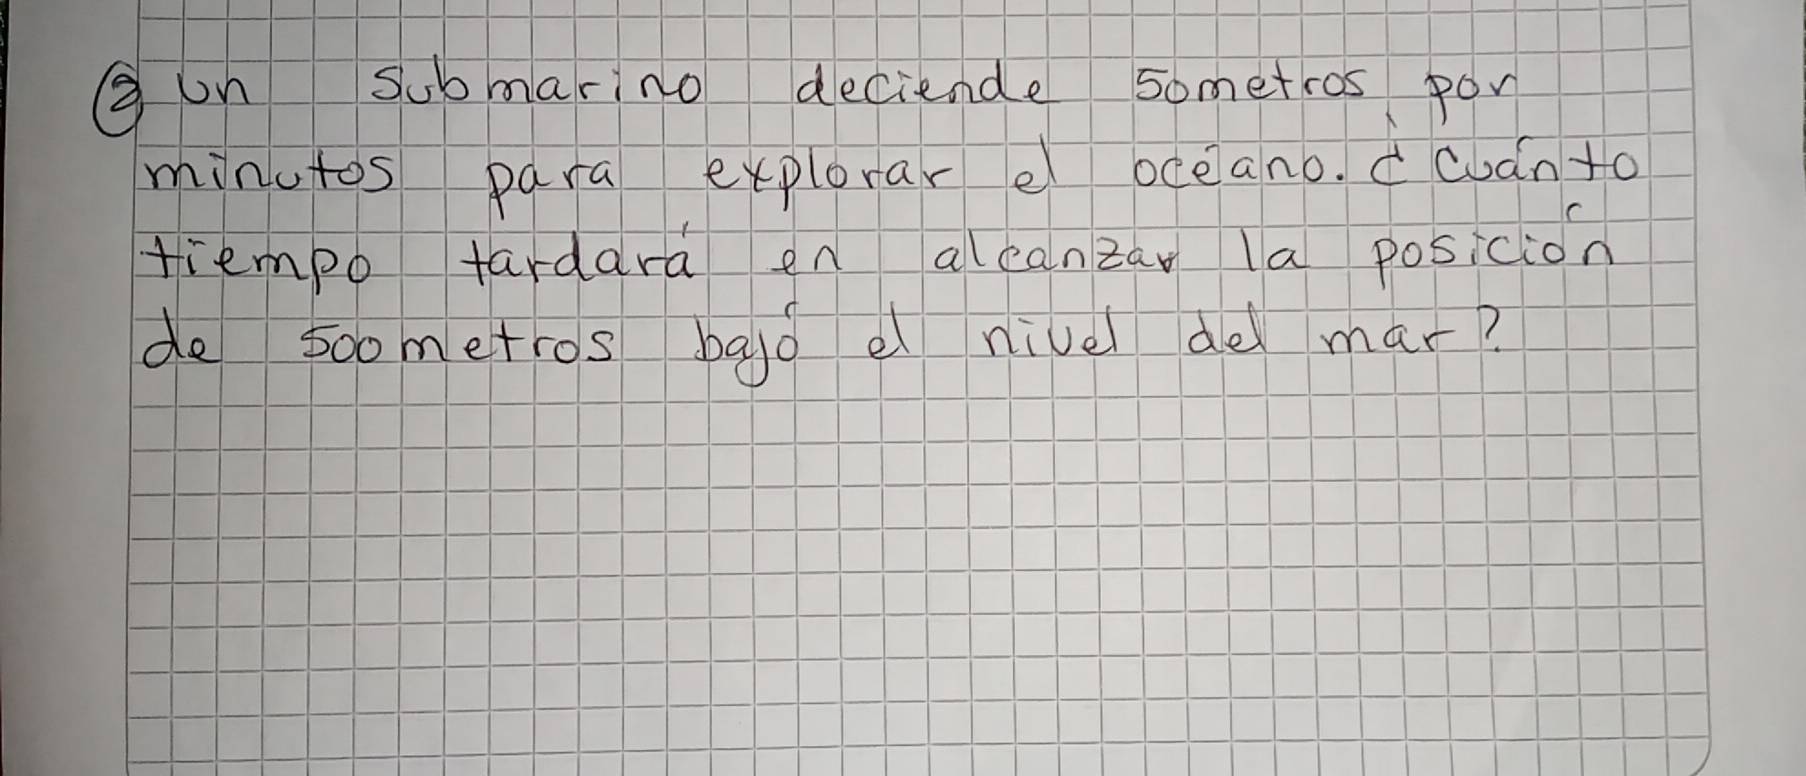 ② un submarino deciende 50metros por
minutos para explorar el océano. ¿Cuánto
tiempo tardará en alcanzar la posición
de 500metros bajó el nivel del mar?